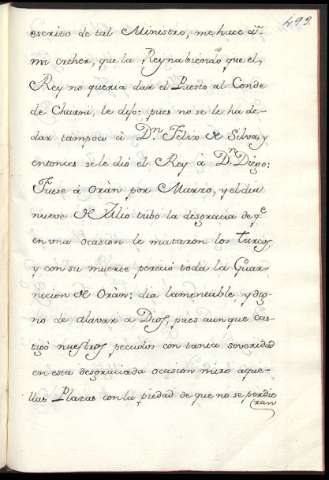 493
escrivo de tal Ministro, me hace à
mi creher, que la Reyna biendo que el
Rey no queria dar el Puesto al Conde
de Charni, le dijo: pues no se le ha de
dar tampoco à Dn. Felix de Silva, y
entonces se le dió el Rey à Dn. Diego:
Fuese à Oràn por Marzo, y el dia
nueve de Julio tubo la desgracia de qe
en vna ocasion le mataron los turcos
y con su muerte pereciò toda la Guar-
nicion de Oràn: dia lamentable, y dig-
no de alavar a Dios, pues aunque cas-
tigò nuestros peccados con tanta severidad
en esta desgraciada ocasion miro aque-
llas Plazas con la piedad de que no se perdie
ran